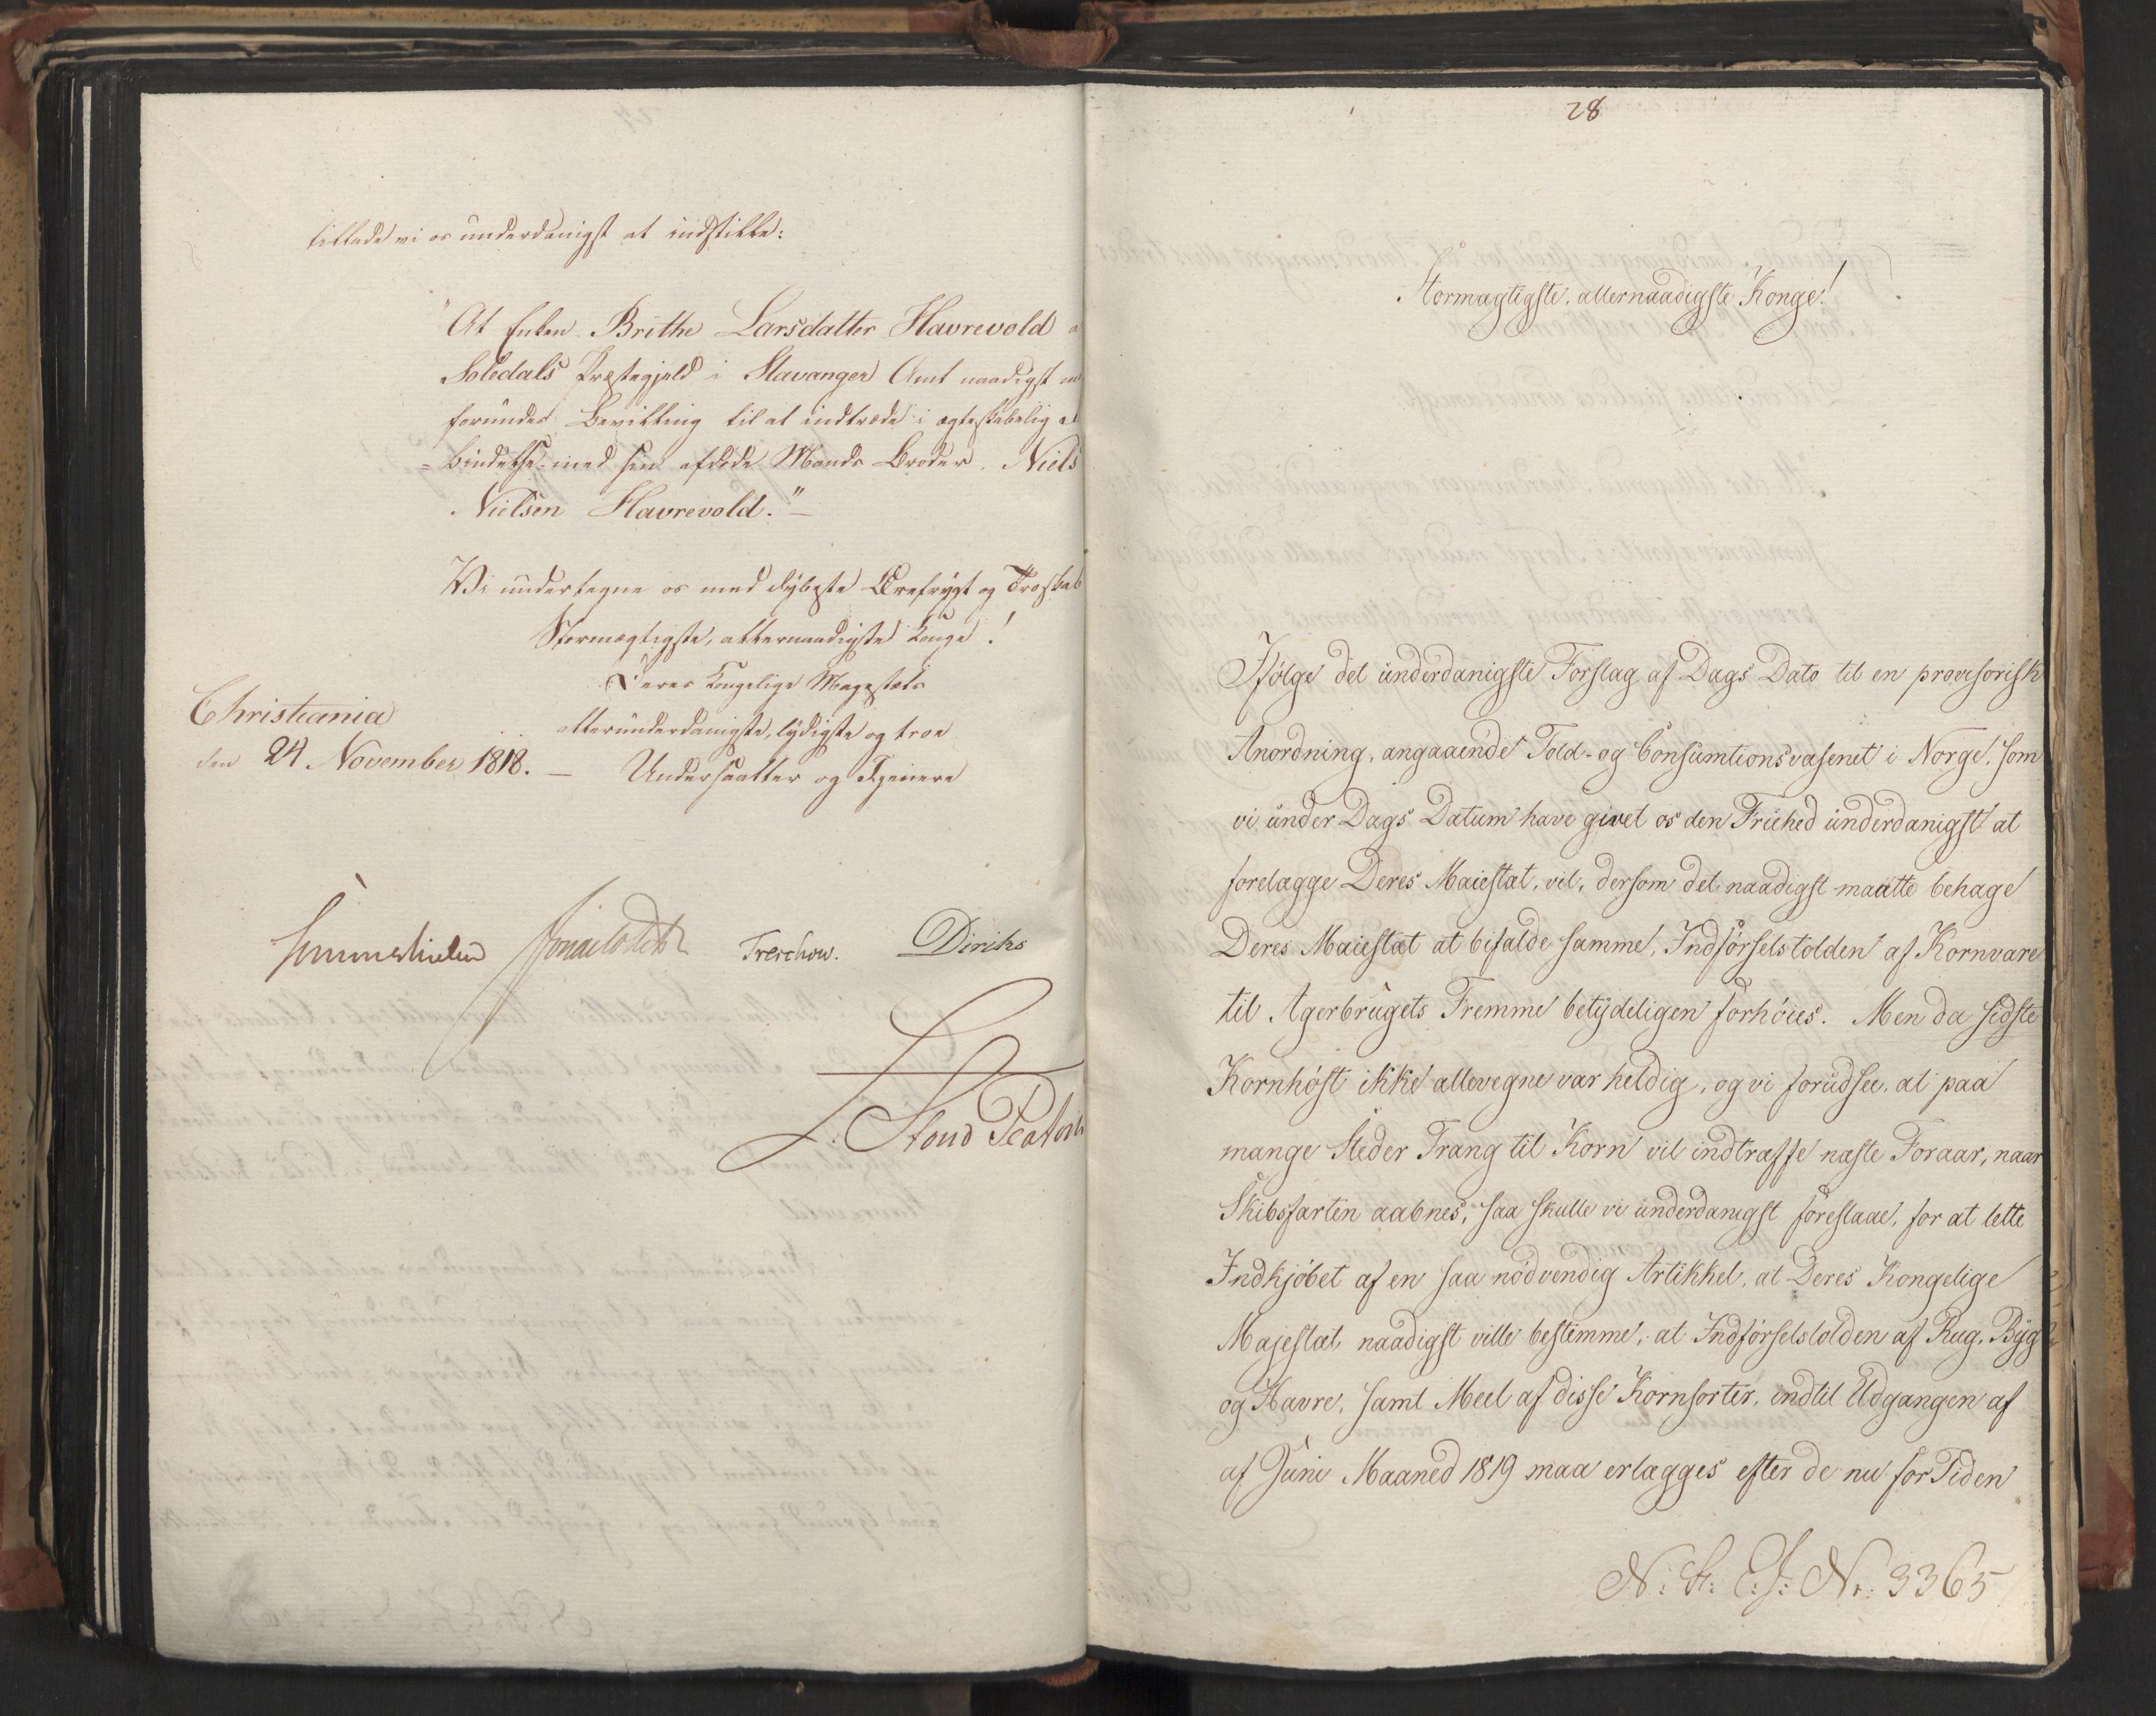 tillade vi os underdanigst at indstille:
"At Enken Brithe Larsdatter Havrevold
Soledals Præstegjeld i Stavanger Amt naadigst
forundes Bevilling til at indtræde i ægteskabelig
bindelse med sin afdøde Mands Broder, Niels
Nielsen Havrevold."
Vi undertegne os med dybeste Ærefrygt og Troskab
Stormægtigste, allernaadigste Konge!
Deres Kongelige Majestæts
Christiania
allerunderdanigste, lydigste og troe
den 24 November 1818. — Undersaatter og Tjenere
Sommerhielm Treschow. Diriks
L. Stoud Platou
28
Stormægtigste, allernaadigste Konge!
Ifølge det underdanigste Forslag af Dags Dato til en provisorisk
Anordning, angaaende Told- og Consumtionsvæsenet i Norge, som
vi under Dags Datum have givet os den Friehed underdanigst at
forelægge Deres Maiestæt, vil, dersom det naadigst maatte behage
Deres Maiestæt at bifalde samme, Indførselstolden af Kornvare
til Agerbrugets Fremme betydeligen forhøies. Men da sidste
Kornhøst ikke allevegne var heldig, og vi forudsee, at paa
mange Steder Trang til Korn vil indtræffe næste Foraar, naar
Skibsfarten aabnes, saa skulle vi underdanigst foreslaae, for at lette
Indkjøbet af en saa nødvendig Artikkel, at Deres Kongelige
Majestæt naadigst ville bestemme, at Indførselstolden af Rug, Byg
og Havre, samt Meel af disse Kornsorter, indtil Udgangen af
af Juni Maaned 1819 maa erlægges efter de nu for Tiden
N: St: E: J: Nr: 3365